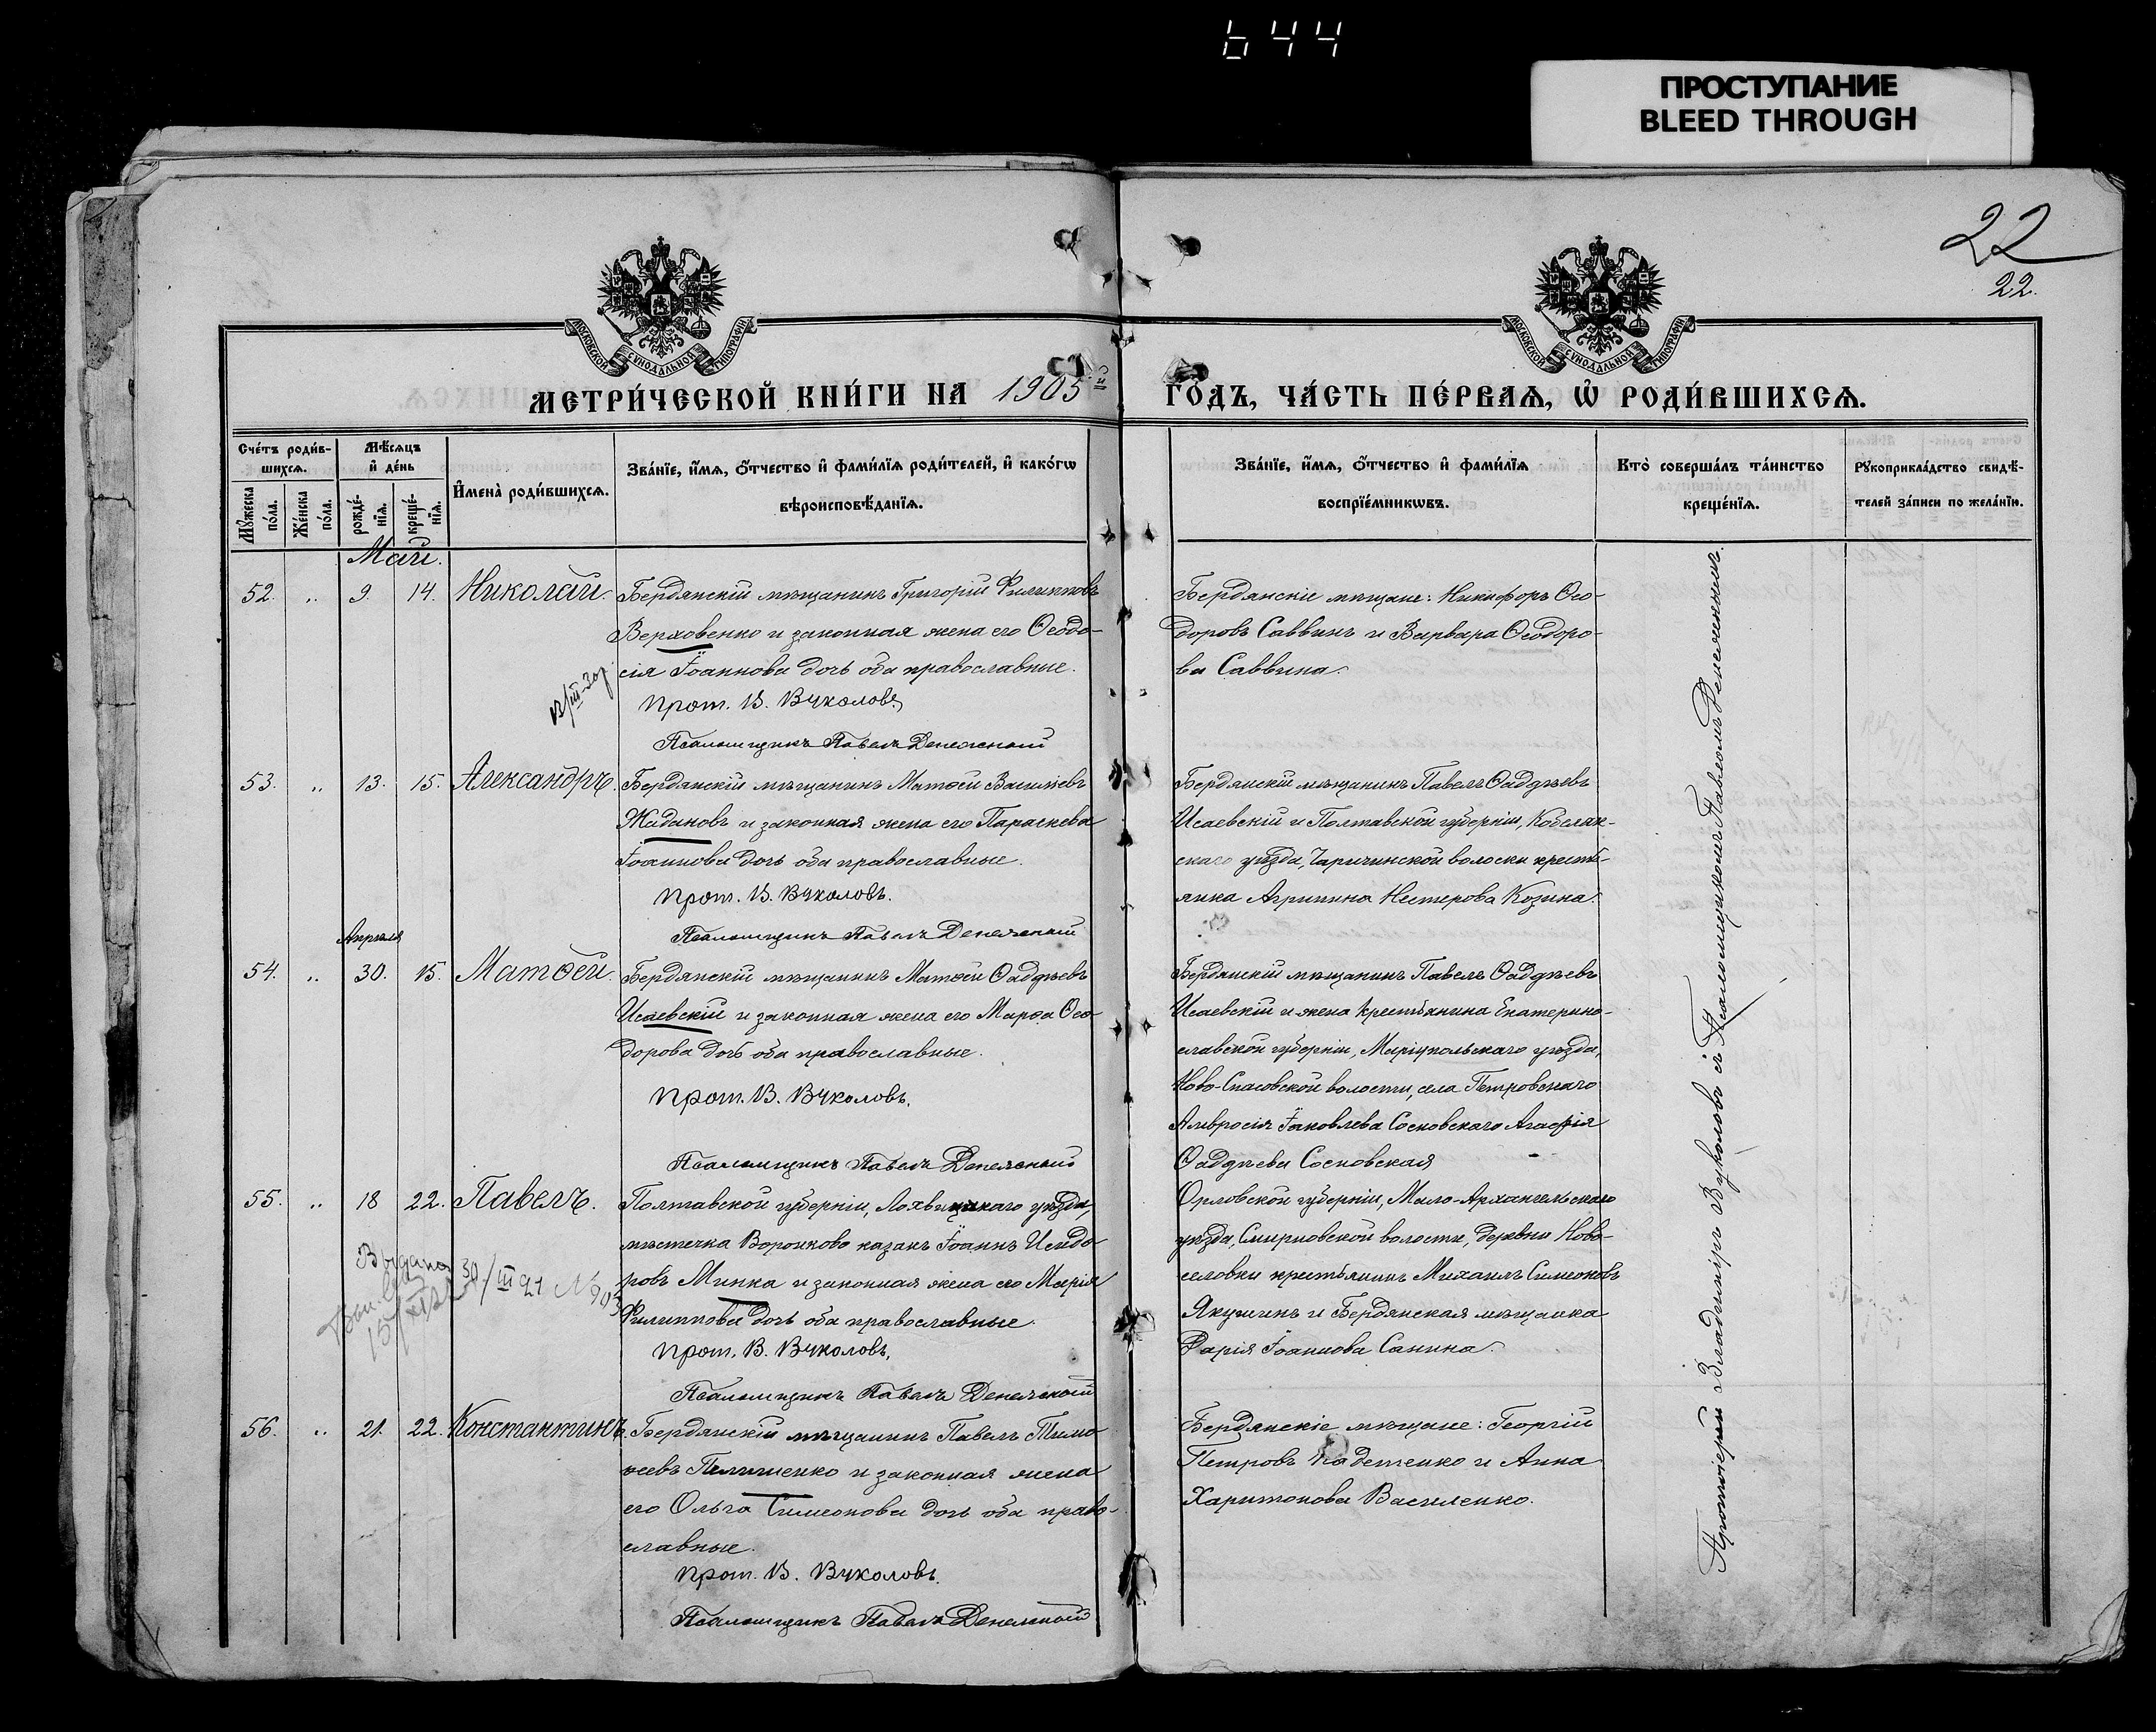 644
ПРОСТУПАНИЕ
BLEED THROUGH
22
22.
МОСКОВСКОЙ СѴНОДАЛЬНОЙ ТИПОГРАФІИ
МОСКОВСКОЙ СѴНОДАЛЬНОЙ ТИПОГРАФІИ
МЕТРИ́ЧЕСКОЙ КНИ́ГИ НА 1905й ГО́ДЪ, ЧА́СТЬ ПЕ́РВАѦ, Ѡ҆ РОДИ́ВШИХСѦ.
Сче́тъ роди́в-
шихсѧ.
Мꙋ́жеска по́ла.
Же́нска по́ла.
Мѣ́сѧцъ
и҆ де́нь
рожде́-
нїѧ.
креще́-
нїѧ.
И҆мена̀ роди́вшихсѧ.
Зва́нїе, и҆́мѧ, ѻ҆́тчество и҆ фами́лїѧ роди́телей, и҆ како́гѡ
вѣроисповѣ́данїѧ.
Зва́нїе, и҆́мѧ, ѻ҆́тчество и҆ фами́лїѧ
воспрїе́мникѡвъ.
Кто̀ соверша́лъ та́инство
креще́нїѧ.
Рꙋкоприкла́дство свидѣ́-
телей за́писи по жела́нїю.
Май.
52. „ 9. 14. Николай. Бердянскій мѣщанинъ Григорій Филипповъ
Верховенко и законная жена его Ѳеодо-
сія Іоаннова дочь оба православные.
Прот. В. Вуколовъ
Псаломщикъ Павелъ Денежный
Бердянскіе мѣщане: Никифоръ Ѳео-
доровъ Саввинъ и Варвара Ѳеодоро-
ва Саввина.
53. „ 13. 15. Александръ. Бердянскій мѣщанинъ Матѳей Василіевъ
Жадановъ и законная жена его Параскева
Іоаннова дочь оба православные.
Прот. В. Вуколовъ.
Псаломщикъ Павелъ Денежный
Бердянскій мѣщанинъ Павелъ Ѳаддѣевъ
Исаевскій и Полтавской губерніи, Кобеляк-
скаго уѣзда, Царичинской волости кресть-
янка Агрипина Нестерова Козина.
Апрѣля
54. „ 30. 15. Матѳей. Бердянскій мѣщанинъ Матѳей Ѳаддѣевъ
Исаевскій и законная жена его Марѳа Ѳео-
дорова дочь оба православные.
Прот. В. Вуколовъ.
Псаломщикъ Павелъ Денежный
Бердянскій мѣщанинъ Павелъ Ѳаддѣевъ
Исаевскій и жена крестьянина Екатерино-
славской губерніи, Маріупольскаго уѣзда,
Ново-Спасовской волости, села Петровскаго
Амвросія Іаковлева Сосновскаго Агафія
Ѳаддѣева Сосновская
55. „ 18 22. Павелъ. Полтавской губерніи, Лохвицкаго уѣзда,
мѣстечка Воронково казакъ Іоаннъ Исидо-
ровъ Минка и законная жена его Марія
Филиппова дочь оба православные.
Прот. В. Вуколовъ,
Псаломщикъ Павелъ Денежный
Выдана 30/III 21 №
Орловской губерніи, Мало-Архангельскаго
уѣзда, Смирновской волости, деревни Ново-
селовки крестьянинъ Михаилъ Симеоновъ
Якушинъ и Бердянская мѣщанка
Дарія Іоаннова Санина.
56. „ 21. 22. Константинъ. Бердянскій мѣщанинъ Павелъ Тимо-
ѳеевъ и законная жена
его Ольга Симеонова дочь оба право-
славные.
Прот. В. Вуколовъ.
Псаломщикъ Павелъ Денежный
Бердянскіе мѣщане: Георгій
Петровъ и Анна
Харитонова Василенко.
Протоіерей Владиміръ Вуколовъ съ Псаломщикомъ Павломъ Денежнымъ.